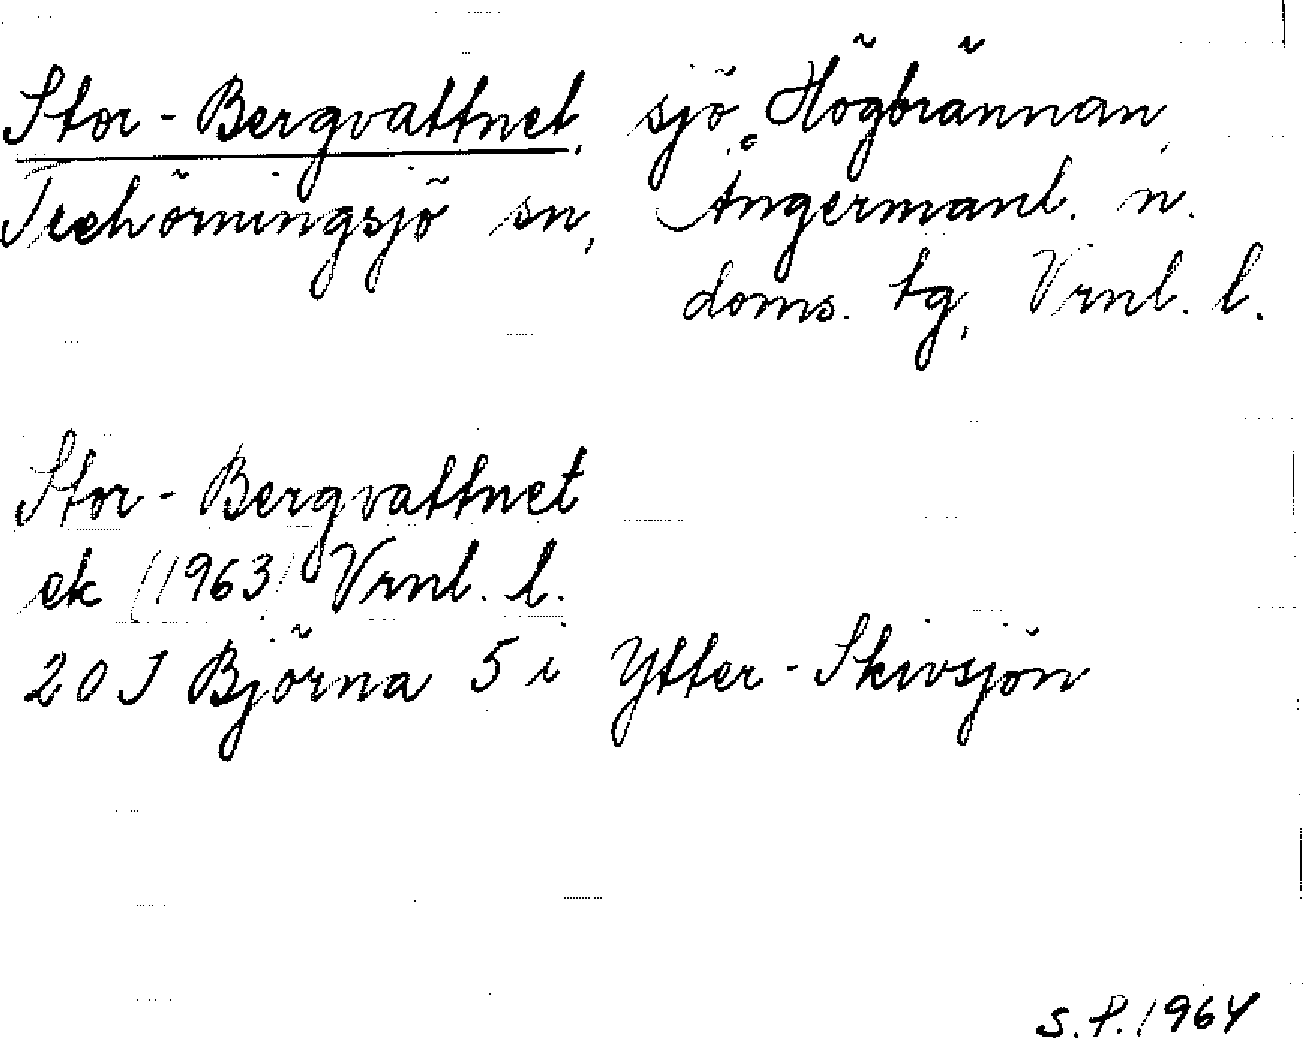 Stor-Bergvattnet, sjö, Högbrännan,
Trehörningsjö sn, Ångermanl. n.
doms. tg, Vrnl. l.
Stor-Bergvattnet
ek (1963) Vrnl. l.
20 J Björna 5 i Ytter-Skivsjön
S.P. 1964